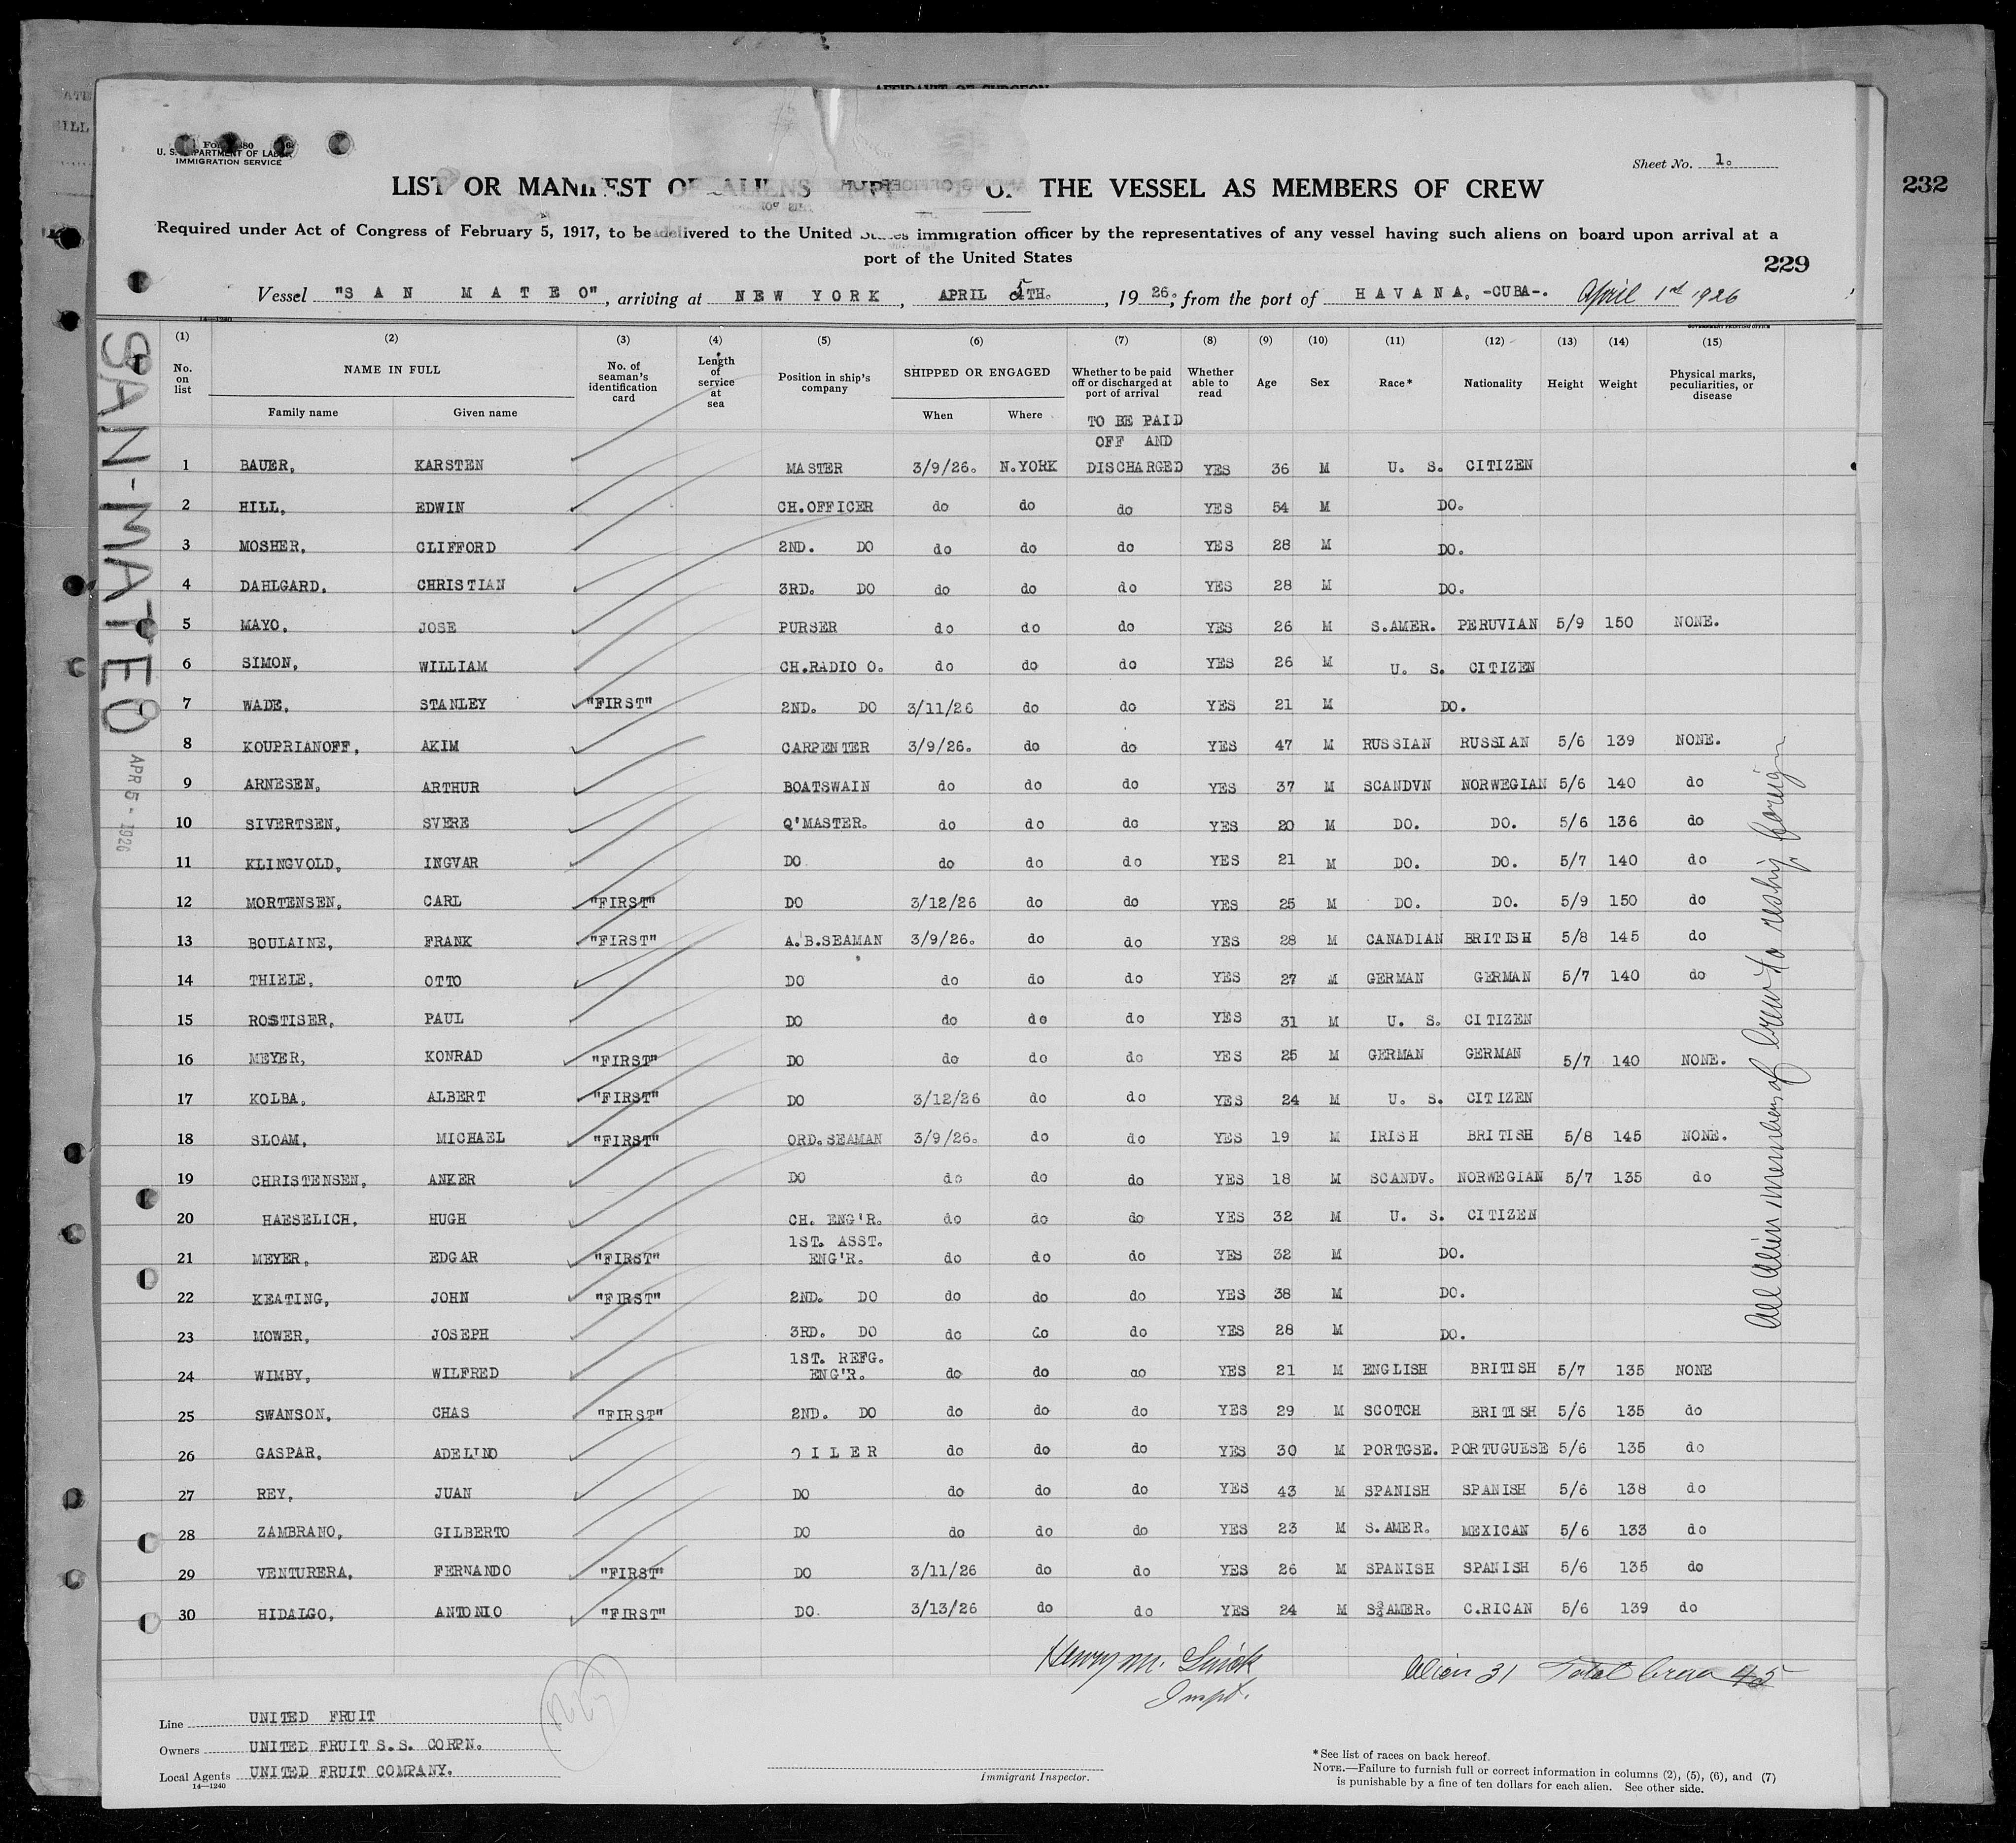 AFFIDAVIT OF SURGEON
U. S. DEPARTMENT OF LABOR
IMMIGRATION SERVICE
Sheet No. 1.
LIST OR MANIFEST OF ALIENS EMPLOYED ON THE VESSEL AS MEMBERS OF CREW
232
Required under Act of Congress of February 5, 1917, to be delivered to the United States immigration officer by the representatives of any vessel having such aliens on board upon arrival at a
port of the United States
229
Vessel "SAN MATEO", arriving at NEW YORK, APRIL 5TH., 1926., from the port of HAVANA. -CUBA-. April 1st 1926
14—1240 GOVERNMENT PRINTING OFFICE
(1) (2) (3) (4) (5) (6) (7) (8) (9) (10) (11) (12) (13) (14) (15)
No. on list NAME IN FULL No. of seaman's identification card Length of service at sea Position in ship's company SHIPPED OR ENGAGED Whether to be paid off or discharged at port of arrival Whether able to read Age Sex Race* Nationality Height Weight Physical marks, peculiarities, or disease
Family name Given name When Where
TO BE PAID
OFF AND
1 BAUER, KARSTEN MASTER 3/9/26. N.YORK DISCHARGED YES 36 M U. S. CITIZEN
2 HILL, EDWIN CH.OFFICER do do do YES 54 M DO.
3 MOSHER, CLIFFORD 2ND. DO do do do YES 28 M DO.
4 DAHLGARD, CHRISTIAN 3RD. DO do do do YES 28 M DO.
5 MAYO, JOSE PURSER do do do YES 26 M S.AMER. PERUVIAN 5/9 150 NONE.
6 SIMON, WILLIAM CH.RADIO O. do do do YES 26 M U. S. CITIZEN
7 WADE, STANLEY "FIRST" 2ND. DO 3/11/26 do do YES 21 M DO.
8 KOUPRIANOFF, AKIM CARPENTER 3/9/26. do do YES 47 M RUSSIAN RUSSIAN 5/6 139 NONE.
9 ARNESEN, ARTHUR BOATSWAIN do do do YES 37 M SCANDVN NORWEGIAN 5/6 140 do
10 SIVERTSEN, SVERE Q'MASTER. do do do YES 20 M DO. DO. 5/6 136 do
11 KLINGVOLD, INGVAR DO do do do YES 21 M DO. DO. 5/7 140 do
12 MORTENSEN, CARL "FIRST" DO 3/12/26 do do YES 25 M DO. DO. 5/9 150 do
13 BOULAINE, FRANK "FIRST" A.B.SEAMAN 3/9/26. do do YES 28 M CANADIAN BRITISH 5/8 145 do
14 THIELE, OTTO DO do do do YES 27 M GERMAN GERMAN 5/7 140 do
15 ROSTISER, PAUL DO do do do YES 31 M U. S. CITIZEN
16 MEYER, KONRAD "FIRST" DO do do do YES 25 M GERMAN GERMAN 5/7 140 NONE.
17 KOLBA, ALBERT "FIRST" DO 3/12/26 do do YES 24 M U. S. CITIZEN
18 SLOAM, MICHAEL "FIRST" ORD.SEAMAN 3/9/26. do do YES 19 M IRISH BRITISH 5/8 145 NONE.
19 CHRISTENSEN, ANKER DO do do do YES 18 M SCANDV. NORWEGIAN 5/7 135 do
20 HAESELICH, HUGH CH. ENG'R. do do do YES 32 M U. S. CITIZEN
21 MEYER, EDGAR "FIRST" 1ST. ASST. ENG'R. do do do YES 32 M DO.
22 KEATING, JOHN "FIRST" 2ND. DO do do do YES 38 M DO.
23 MOWER, JOSEPH 3RD. DO do do do YES 28 M DO.
24 WIMBY, WILFRED 1ST. REFG. ENG'R. do do do YES 21 M ENGLISH BRITISH 5/7 135 NONE
25 SWANSON, CHAS "FIRST" 2ND. DO do do do YES 29 M SCOTCH BRITISH 5/6 135 do
26 GASPAR, ADELINO OILER do do do YES 30 M PORTGSE. PORTUGUESE 5/6 135 do
27 REY, JUAN DO do do do YES 43 M SPANISH SPANISH 5/6 138 do
28 ZAMBRANO, GILBERTO DO do do do YES 23 M S.AMER. MEXICAN 5/6 133 do
29 VENTURERA, FERNANDO "FIRST" DO 3/11/26 do do YES 26 M SPANISH SPANISH 5/6 135 do
30 HIDALGO, ANTONIO "FIRST" DO 3/13/26 do do YES 24 M S.AMER. C.RICAN 5/6 139 do
SAN-MATEO
APR 5 - 1926
All Alien members of Crew to reship foreign
Henry M.
Inspt.
Alien 31 Total Crew 45
Line UNITED FRUIT
Owners UNITED FRUIT S.S. CORPN.
Local Agents UNITED FRUIT COMPANY.
14—1240
Immigrant Inspector.
*See list of races on back hereof.
NOTE.—Failure to furnish full or correct information in columns (2), (5), (6), and (7)
is punishable by a fine of ten dollars for each alien. See other side.